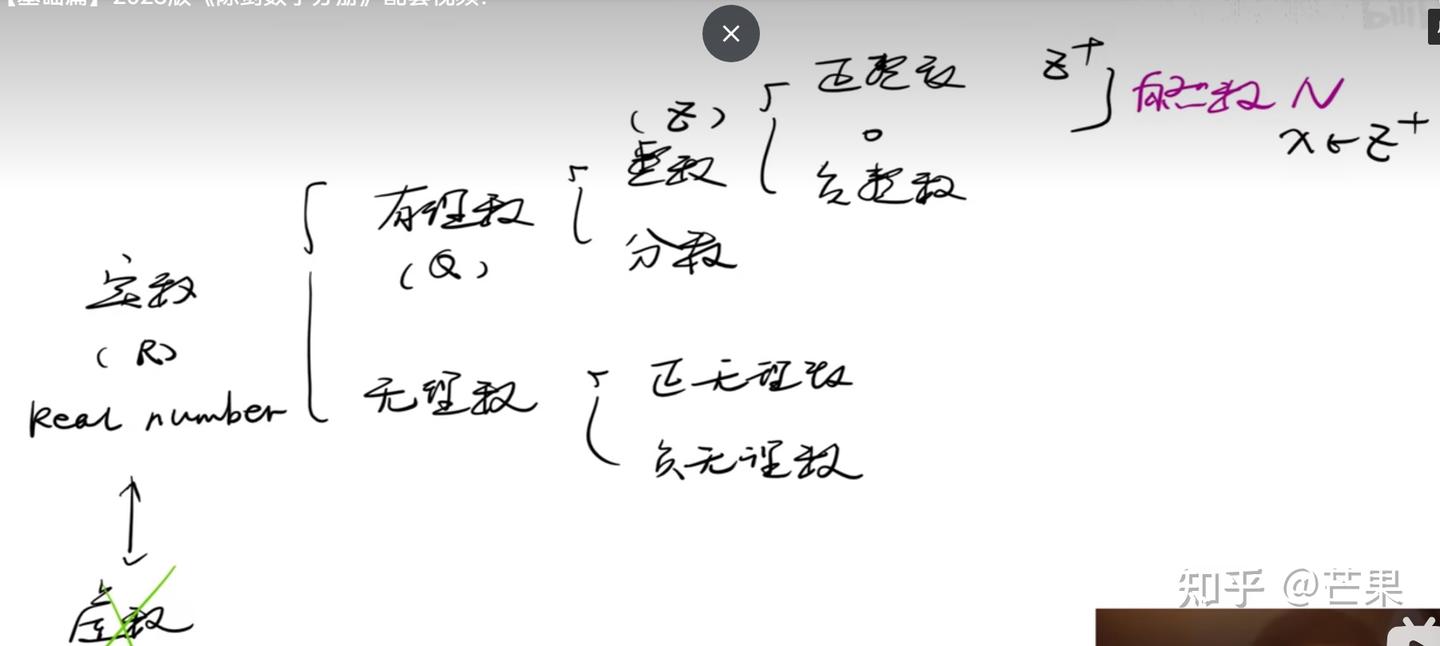 【基础篇】2023版《陈剑数学分册》配套视频！
正整数 Z⁺
自然数 N
(Z)
0
x∈Z⁺
整数
有理数
负整数
(Q)
分数
实数
(R)
无理数
正无理数
Real number
负无理数
虚数
知乎 @芒果